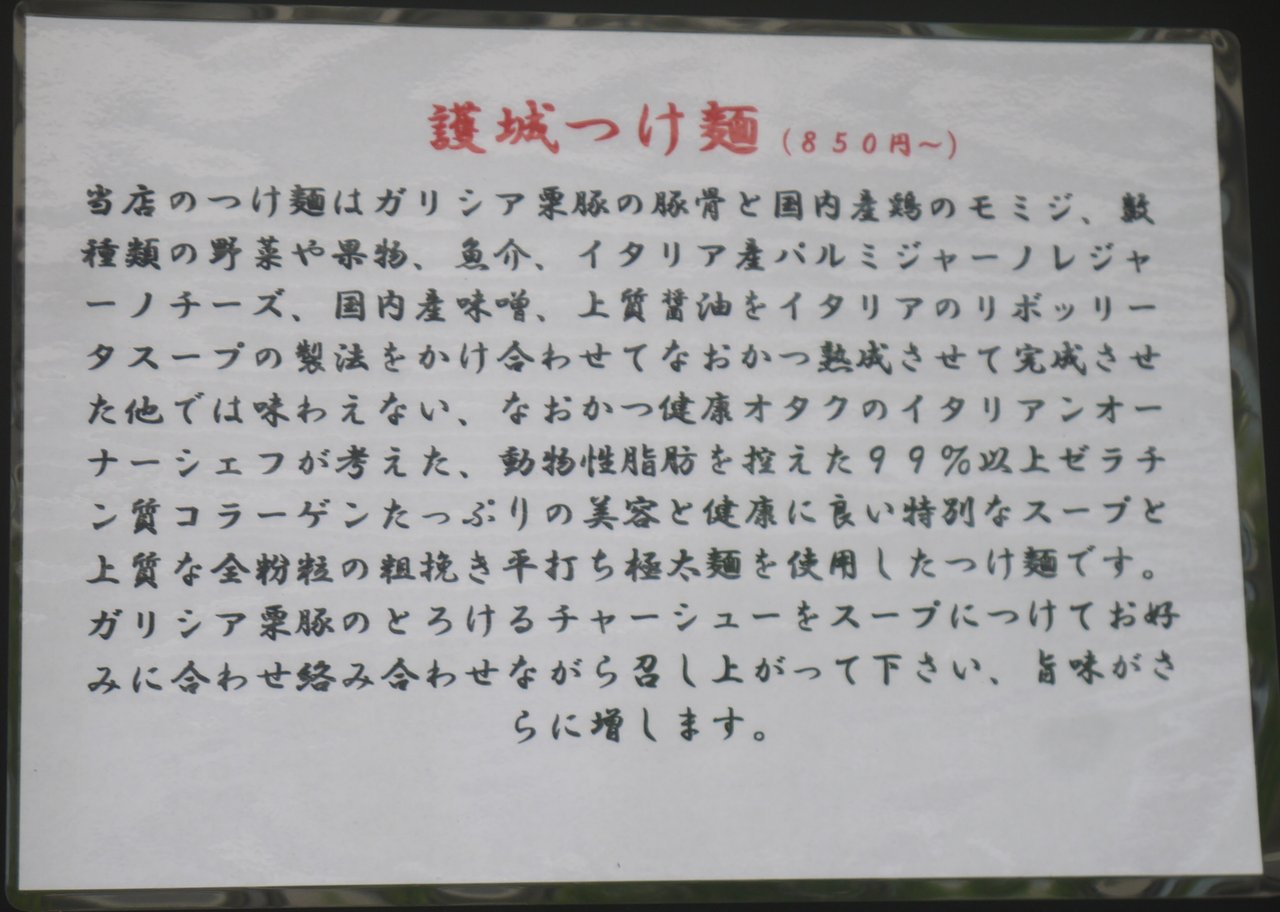 護城つけ麺(850円～)
当店のつけ麺はガリシア栗豚の豚骨と国内産鶏のモミジ、数
種類の野菜や果物、魚介、イタリア産パルミジャーノレジャ
ーノチーズ、国内産味噌、上質醤油をイタリアのリボッリー
タスープの製法をかけ合わせてなおかつ熟成させて完成させ
た他では味わえない、なおかつ健康オタクのイタリアンオー
ナーシェフが考えた、動物性脂肪を控えた99%以上ゼラチ
ン質コラーゲンたっぷりの美容と健康に良い特別なスープと
上質な全粉粒の粗挽き平打ち極太麺を使用したつけ麺です。
ガリシア栗豚のとろけるチャーシューをスープにつけてお好
みに合わせ絡み合わせながら召し上がって下さい、旨味がさ
らに増します。